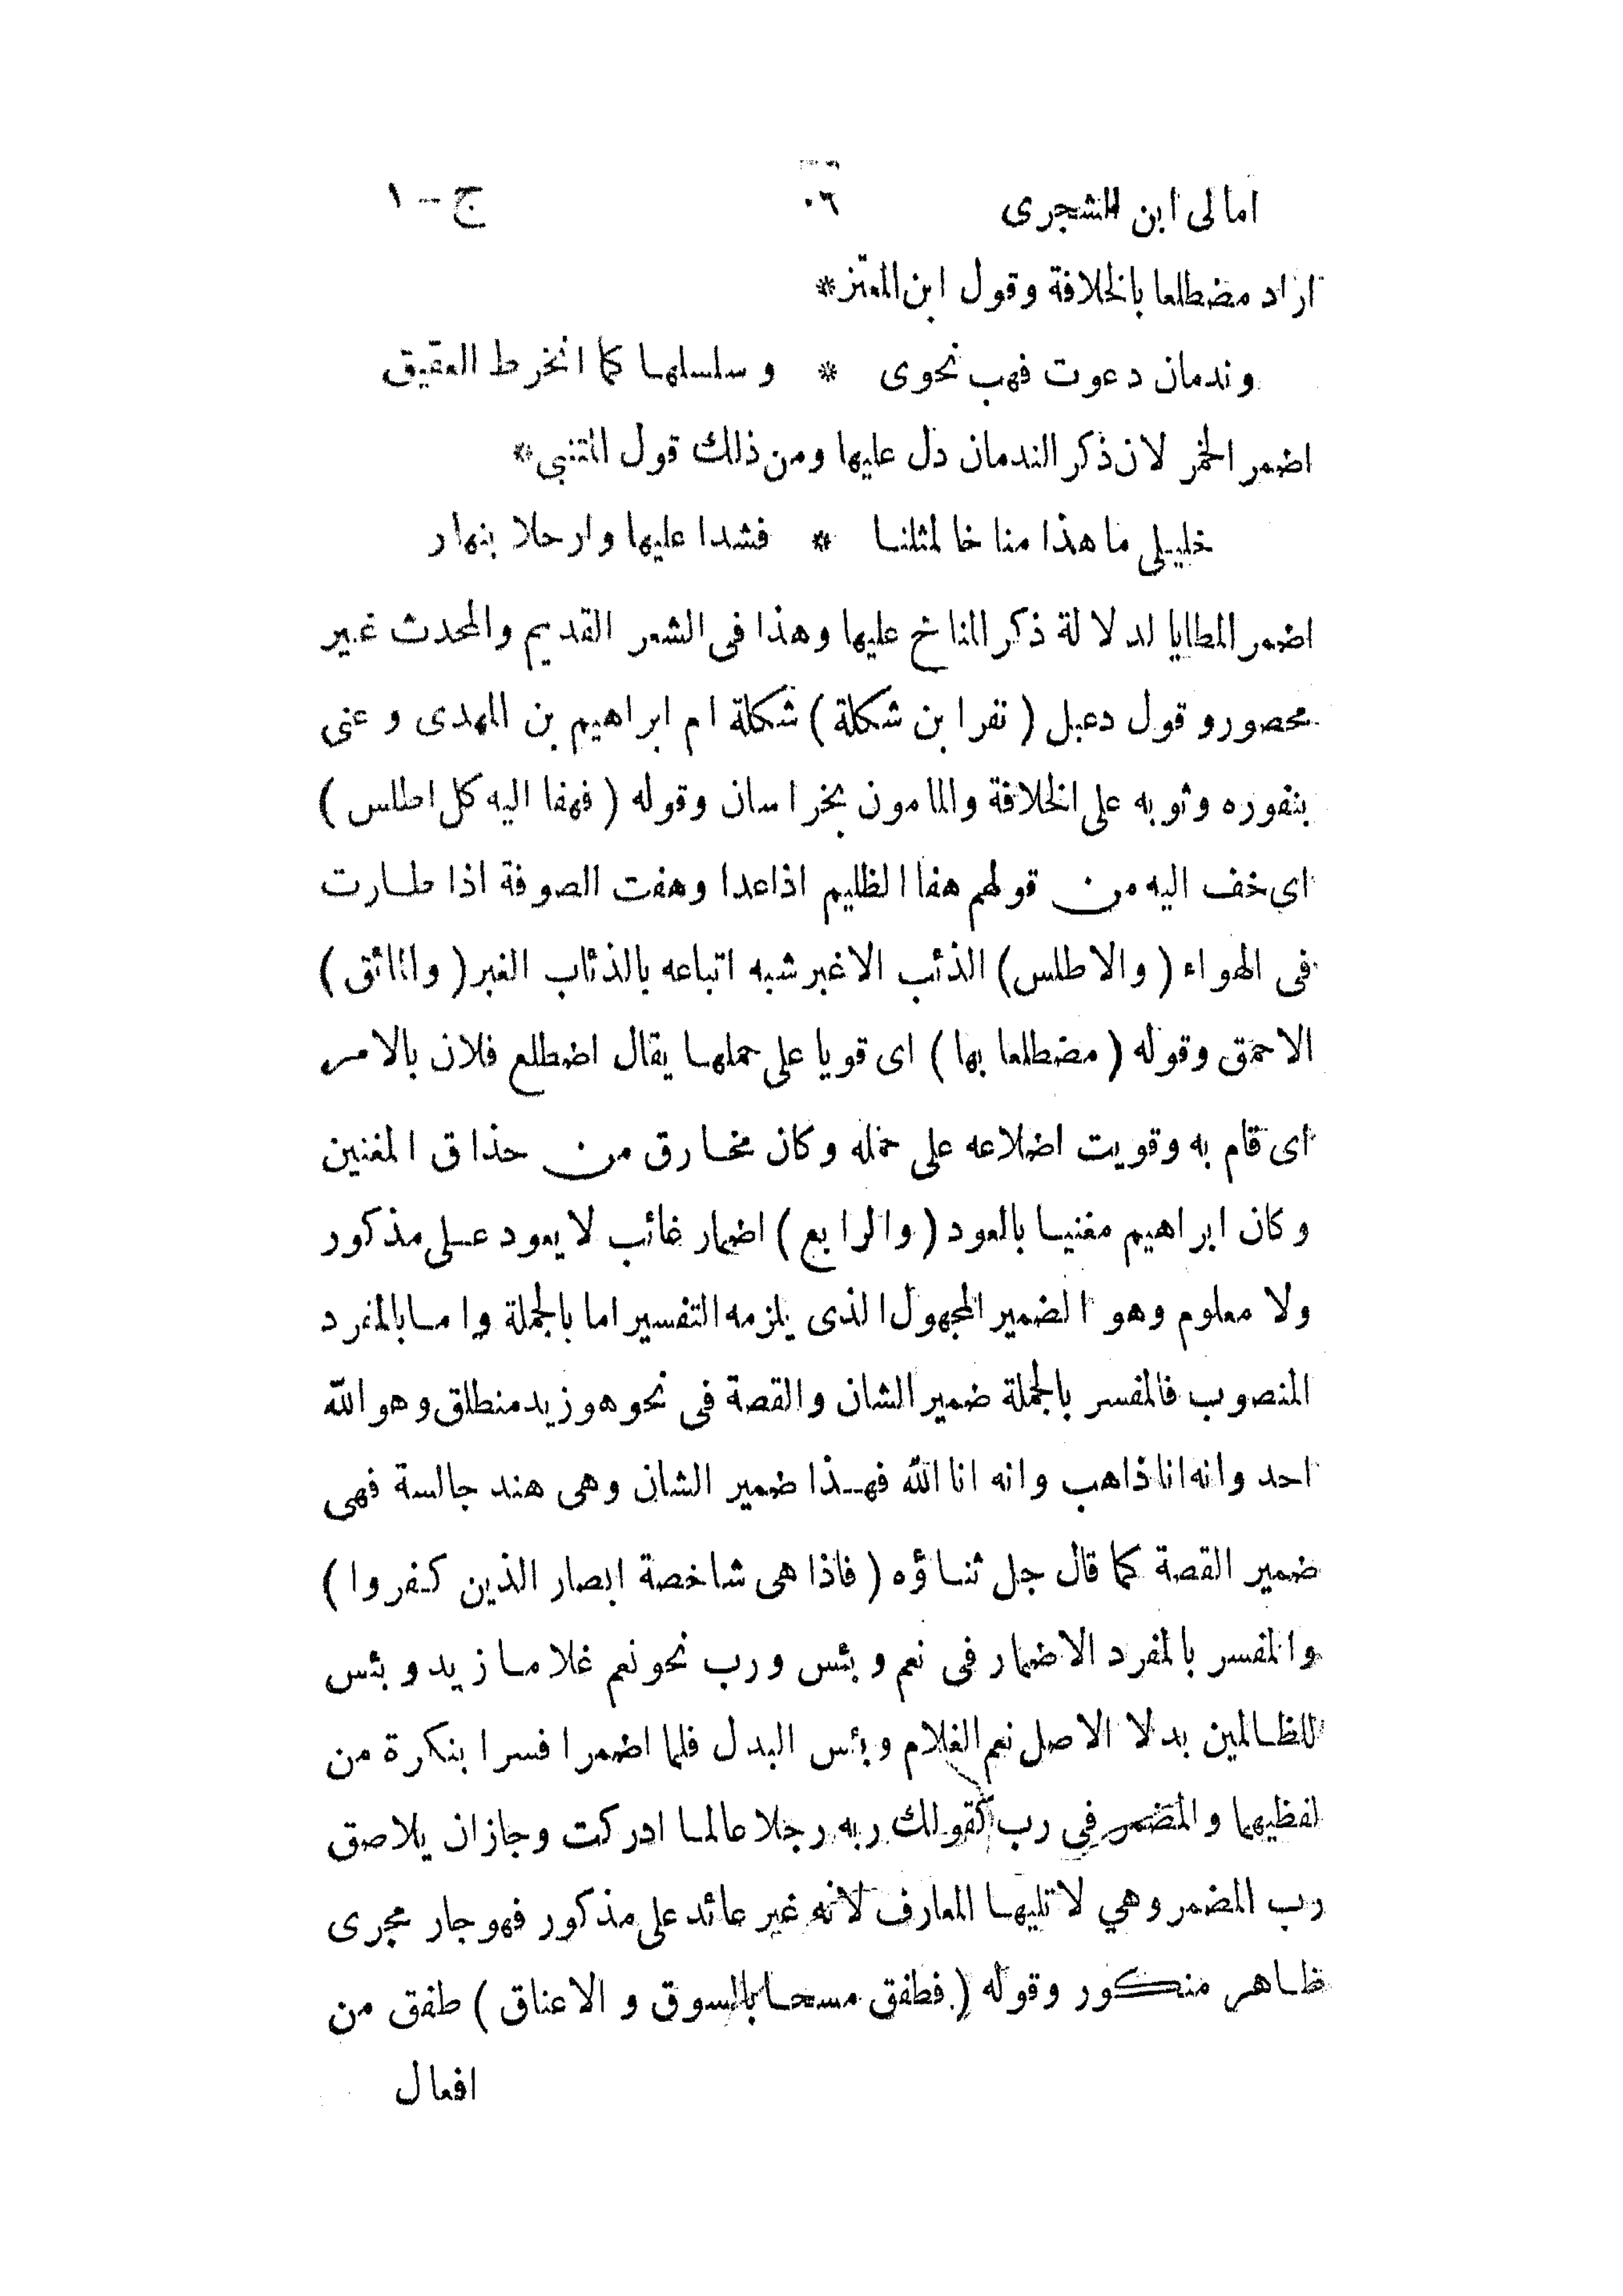 امالى ابن الشجرى ٠٦ ج - ١
اراد مضطلعا بالخلافة وقول ابن المعتز*
وندمان دعوت فهب نحوى * وسلسلها كما انخرط العقيق
اضمر الخمر لان ذكر الندمان دل عليها ومن ذلك قول المتنبى*
خليلى ما هذا مناخا لمثلنا * فشدا عليها وارحلا بنهار
اضمر المطايا لدلالة ذكر المناخ عليها وهذا فى الشعر القديم والمحدث غير
محصور وقول دعبل ( نفرا بن شكلة ) شكلة ام ابراهيم بن المهدى وعنى
بنفوره وثوبه على الخلافة والمامون بخراسان وقوله ( فهفا اليه كل اطلس )
اى خف اليه من قولهم هفا الظليم اذا عدا وهفت الصوفة اذا طارت
فى الهواء ( والاطلس ) الذئب الاغبر شبه اتباعه بالذئاب الغبر ( والمائق )
الاحمق وقوله ( مضطلعا بها ) اى قويا على حملها يقال اضطلع فلان بالامر
اى قام به وقويت اضلاعه على حمله وكان مخارق من حذاق المغنين
وكان ابراهيم مغنيا بالعود ( والرابع ) اضمار غائب لا يعود على مذكور
ولا معلوم وهو الضمير المجهول الذى يلزمه التفسير اما بالجملة واما بالمفرد
المنصوب فالمفسر بالجملة ضمير الشان والقصة فى نحو هو زيد منطلق وهو الله
احد وانه انا ذاهب وانه انا الله فهذا ضمير الشان وهى هند جالسة فهى
ضمير القصة كما قال جل ثناؤه ( فاذا هى شاخصة ابصار الذين كفروا )
والمفسر بالمفرد الاضمار فى نعم وبئس ورب نحو نعم غلاما زيد وبئس
للظالمين بدلا الاصل نعم الغلام وبئس البدل فلما اضمرا فسرا بنكرة من
لفظيهما والمضمر فى رب كقولك ربه رجلا عالما ادركت وجاز ان يلاصق
رب المضمر وهي لا تليها المعارف لانه غير عائد على مذكور فهو جار مجرى
ظاهر منكور وقوله ( فطفق مسحا بالسوق والاعناق ) طفق من
افعال